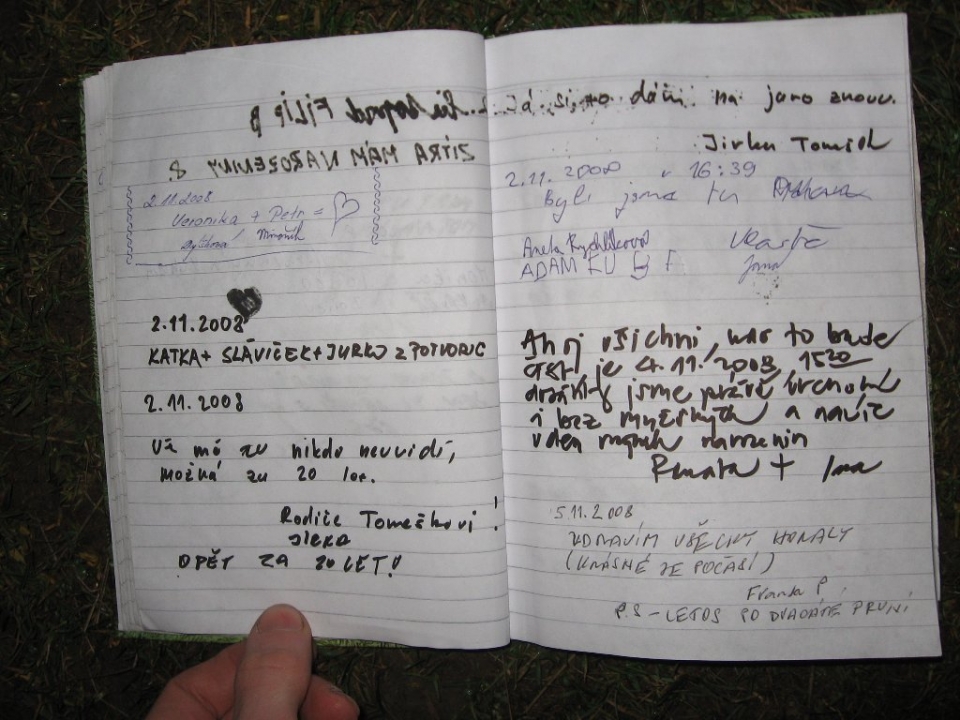 FILIP B
ZÍTRA MÁM NAROZENINY 8.
2.11.2008
Veronika + Petr =
2.11.2008
KATKA + SLÁVIČEK + JURKO z POTVORUC
2.11.2008
Už mě tu nikdo neuvidí,
možná za 20 let.
Rodiče Tomeškovi !
Jirka
OPĚT ZA 20 LET!
si to dám na jaro znovu.
Jirka
2.11.2008 v 16:39
Byli jsme tu
Aneta Rychlíková
ADAM
Vlasta
Jana
Ahoj všichni, was to bude
je 4.11.2008, 1520
jsme právě vrchol
i bez mužských a navíc
v den mých narozenin
Renata + Ina
5.11.2008
ZDRAVÍM VŠECHNY HORALY
(KRÁSNÉ ZE POČASÍ)
Franta P.
P.S - LETOS PO DVACÁTÉ PRVNÍ